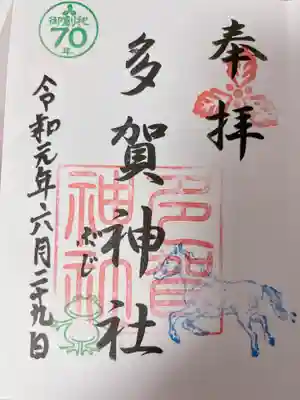 奉拝
多賀神社
多賀
神社
ぶじ
令和元年六月二十九日
御創祀
70年